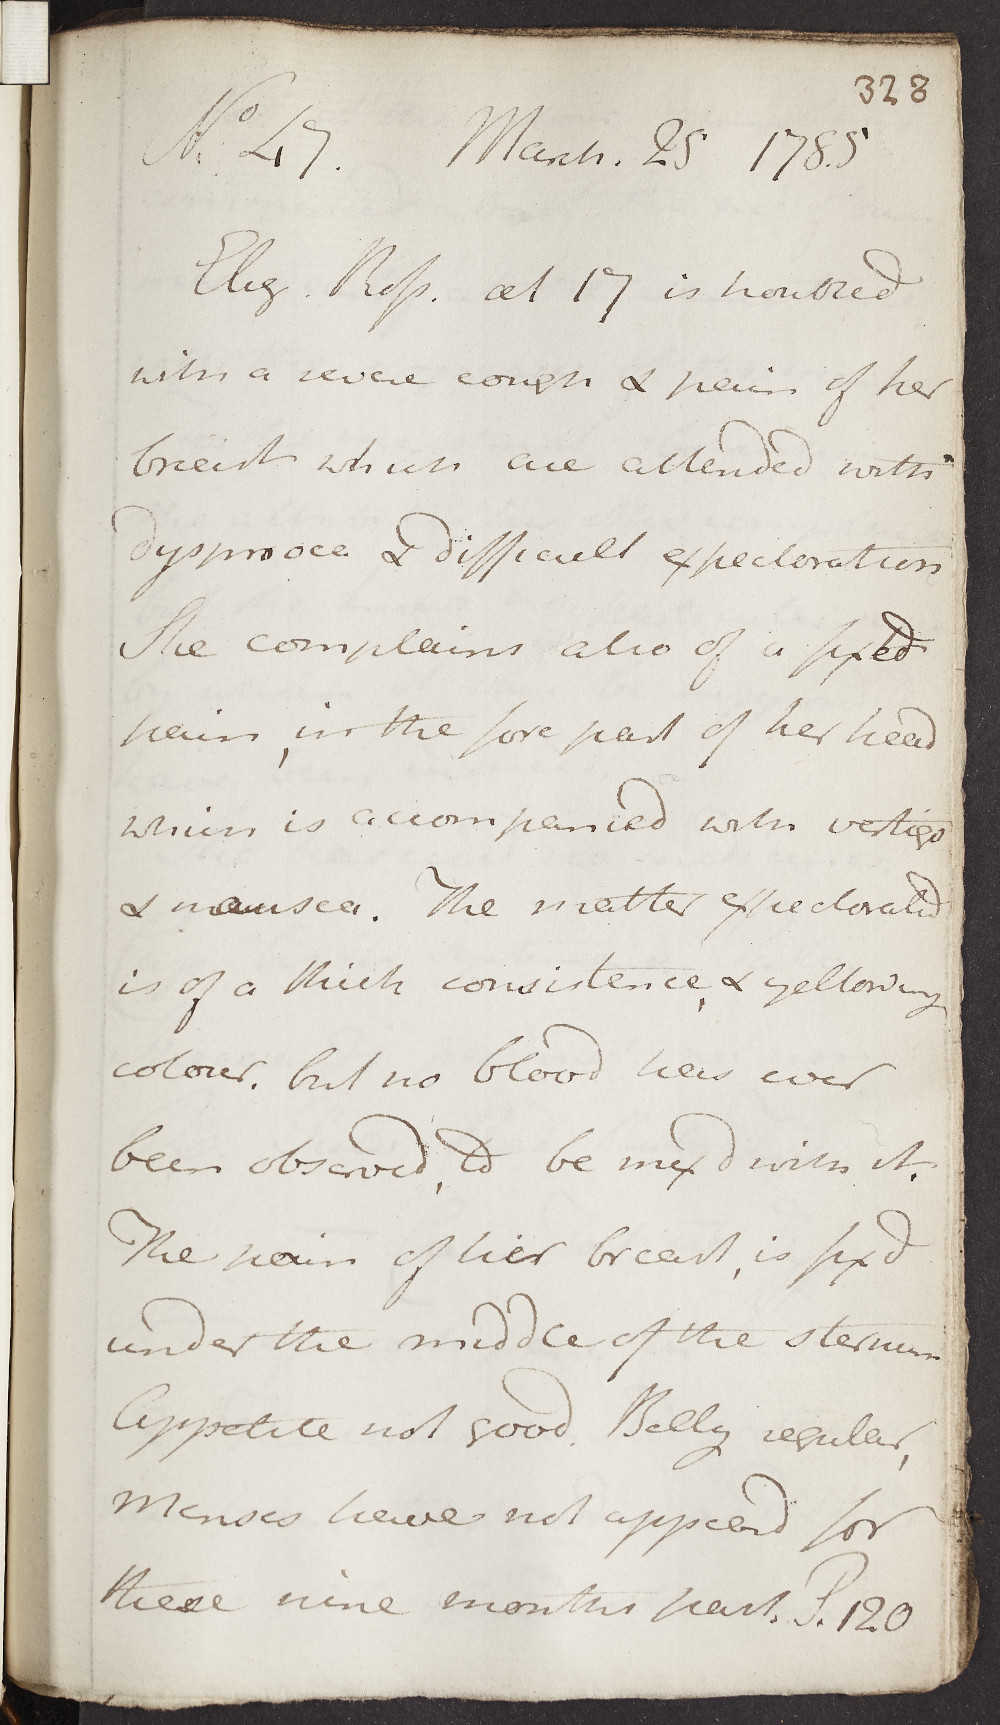 328
No. 47. March. 25 1785
Eliz. Ross. æt 17 is troubled
with a severe cough & pain of her
breast which are attended with
dyspnoea & difficult expectoration
She complains also of a fixed
pain, in the fore part of her head
which is accompanied with vertigo
& nausea. The matter expectorated
is of a thick consistence, & yellowing
colour. but no blood has ever
been observed, to be mixd with it.
The pain of her breast, is fixd
under the middle of the sternum
Appetite not good. Belly regular,
Menses have not appeard for
these nine months past. P. 120